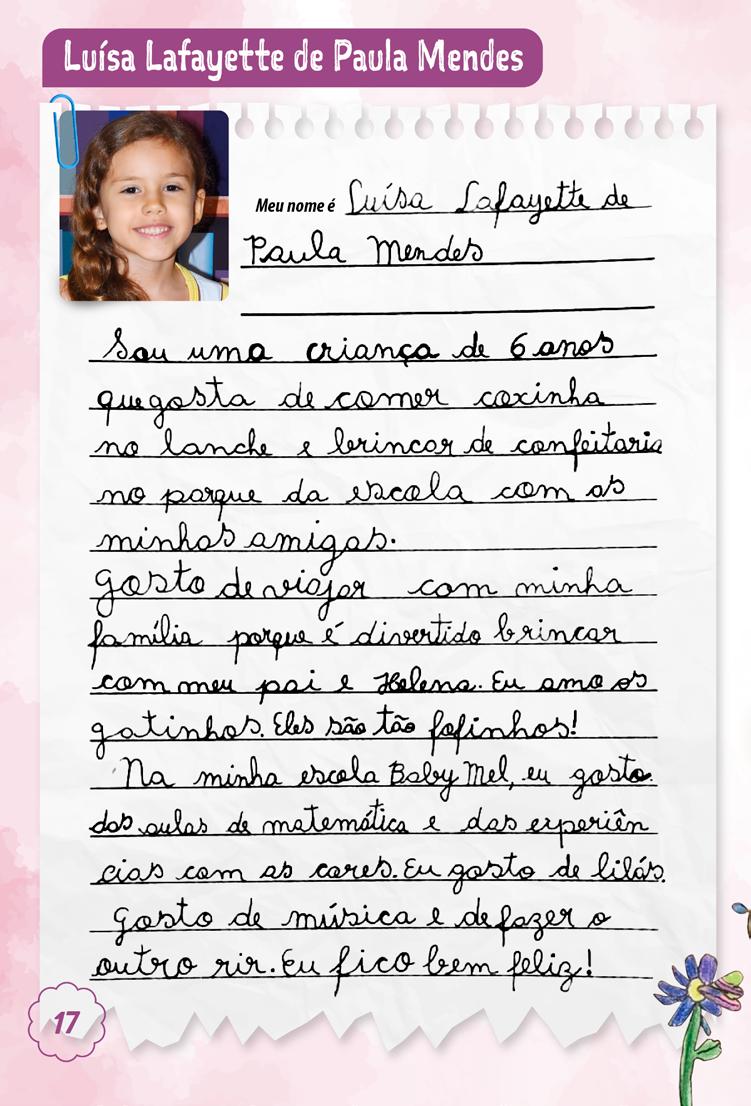 Luísa Lafayette de Paula Mendes
Meu nome é Luísa Lafayette de
Paula Mendes
Sou uma criança de 6 anos
que gosta de comer coxinha
no lanche e brincar de confeitaria
no parque da escola com as
minhas amigas.
Gosto de viajar com minha
família porque é divertido brincar
com meu pai e Helena. Eu amo os
gatinhos. Eles são tão fofinhos!
Na minha escola Baby Mel, eu gosto
das aulas de matemática e das experiên
cias com as cores. Eu gosto de lilás.
Gosto de música e de fazer o
outro rir. Eu fico bem feliz!
17